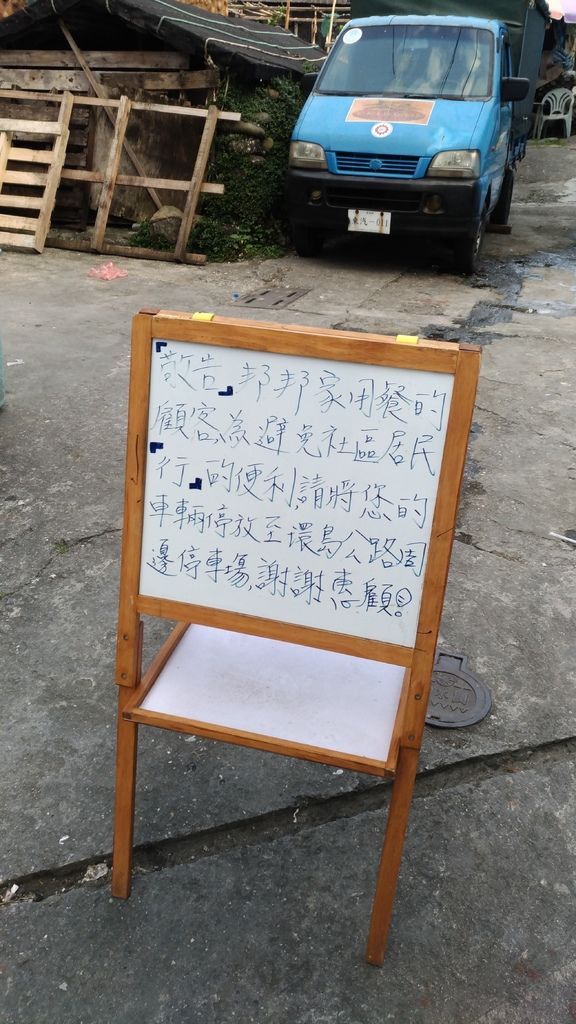 「敬告」邦邦家用餐的
顧客,為避免社區居民
「行」的便利,請將您的
車輛停放至環島公路周
邊停車場,謝謝惠顧!